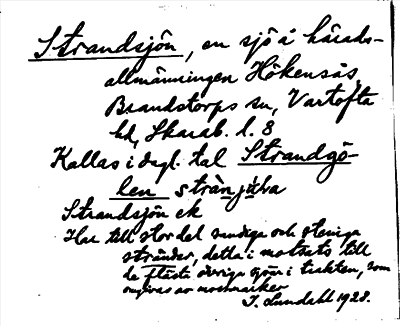 Strandsjön, en sjö å härads-
allmänningen Hökensås,
Brandstorps sn, Vartofta
hd, Skarab. l. 8
Kallas i dagl. tal Strandgö-
len strànjö̀lna
Strandsjön ek
Har till stor del sandiga och steniga
stränder, detta i motsats till
de flästa övriga sjöar i trakten, som
omgivas av mossmarker
J. Lundahl 1928.